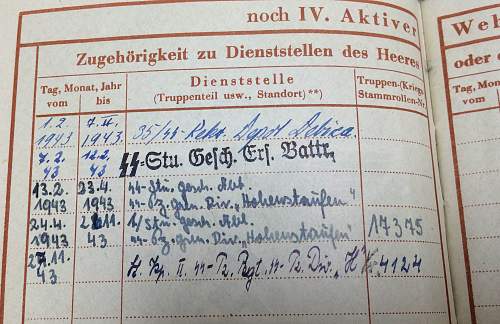 noch IV. Aktiver
Zugehörigkeit zu Dienststellen des Heeres
Tag, Monat, Jahr
vom
bis
Dienststelle
(Truppenteil usw., Standort) **)
Truppen-(Kriegs-
Stammrollen-Nr.
1.2. 1943
7.2. 1943
35/SS Rekr. Depot Debica
7.2. 43
12.2. 43
SS-Stu. Gesch. Ers. Battr.
13.2. 1943
23.4. 1943
SS-Stu. gesch. Abt.
SS-Pz. gren. Div. „Hohenstaufen"
24.4. 1943
11. 43
1/Stu. gesch. Abt.
SS-Pz. gren. Div. „Hohenstaufen"
17375
11. 43
II. SS-Pz. Rgt. SS-Pz. Div. „H
4124
Web
oder
Tag, Mo
vom